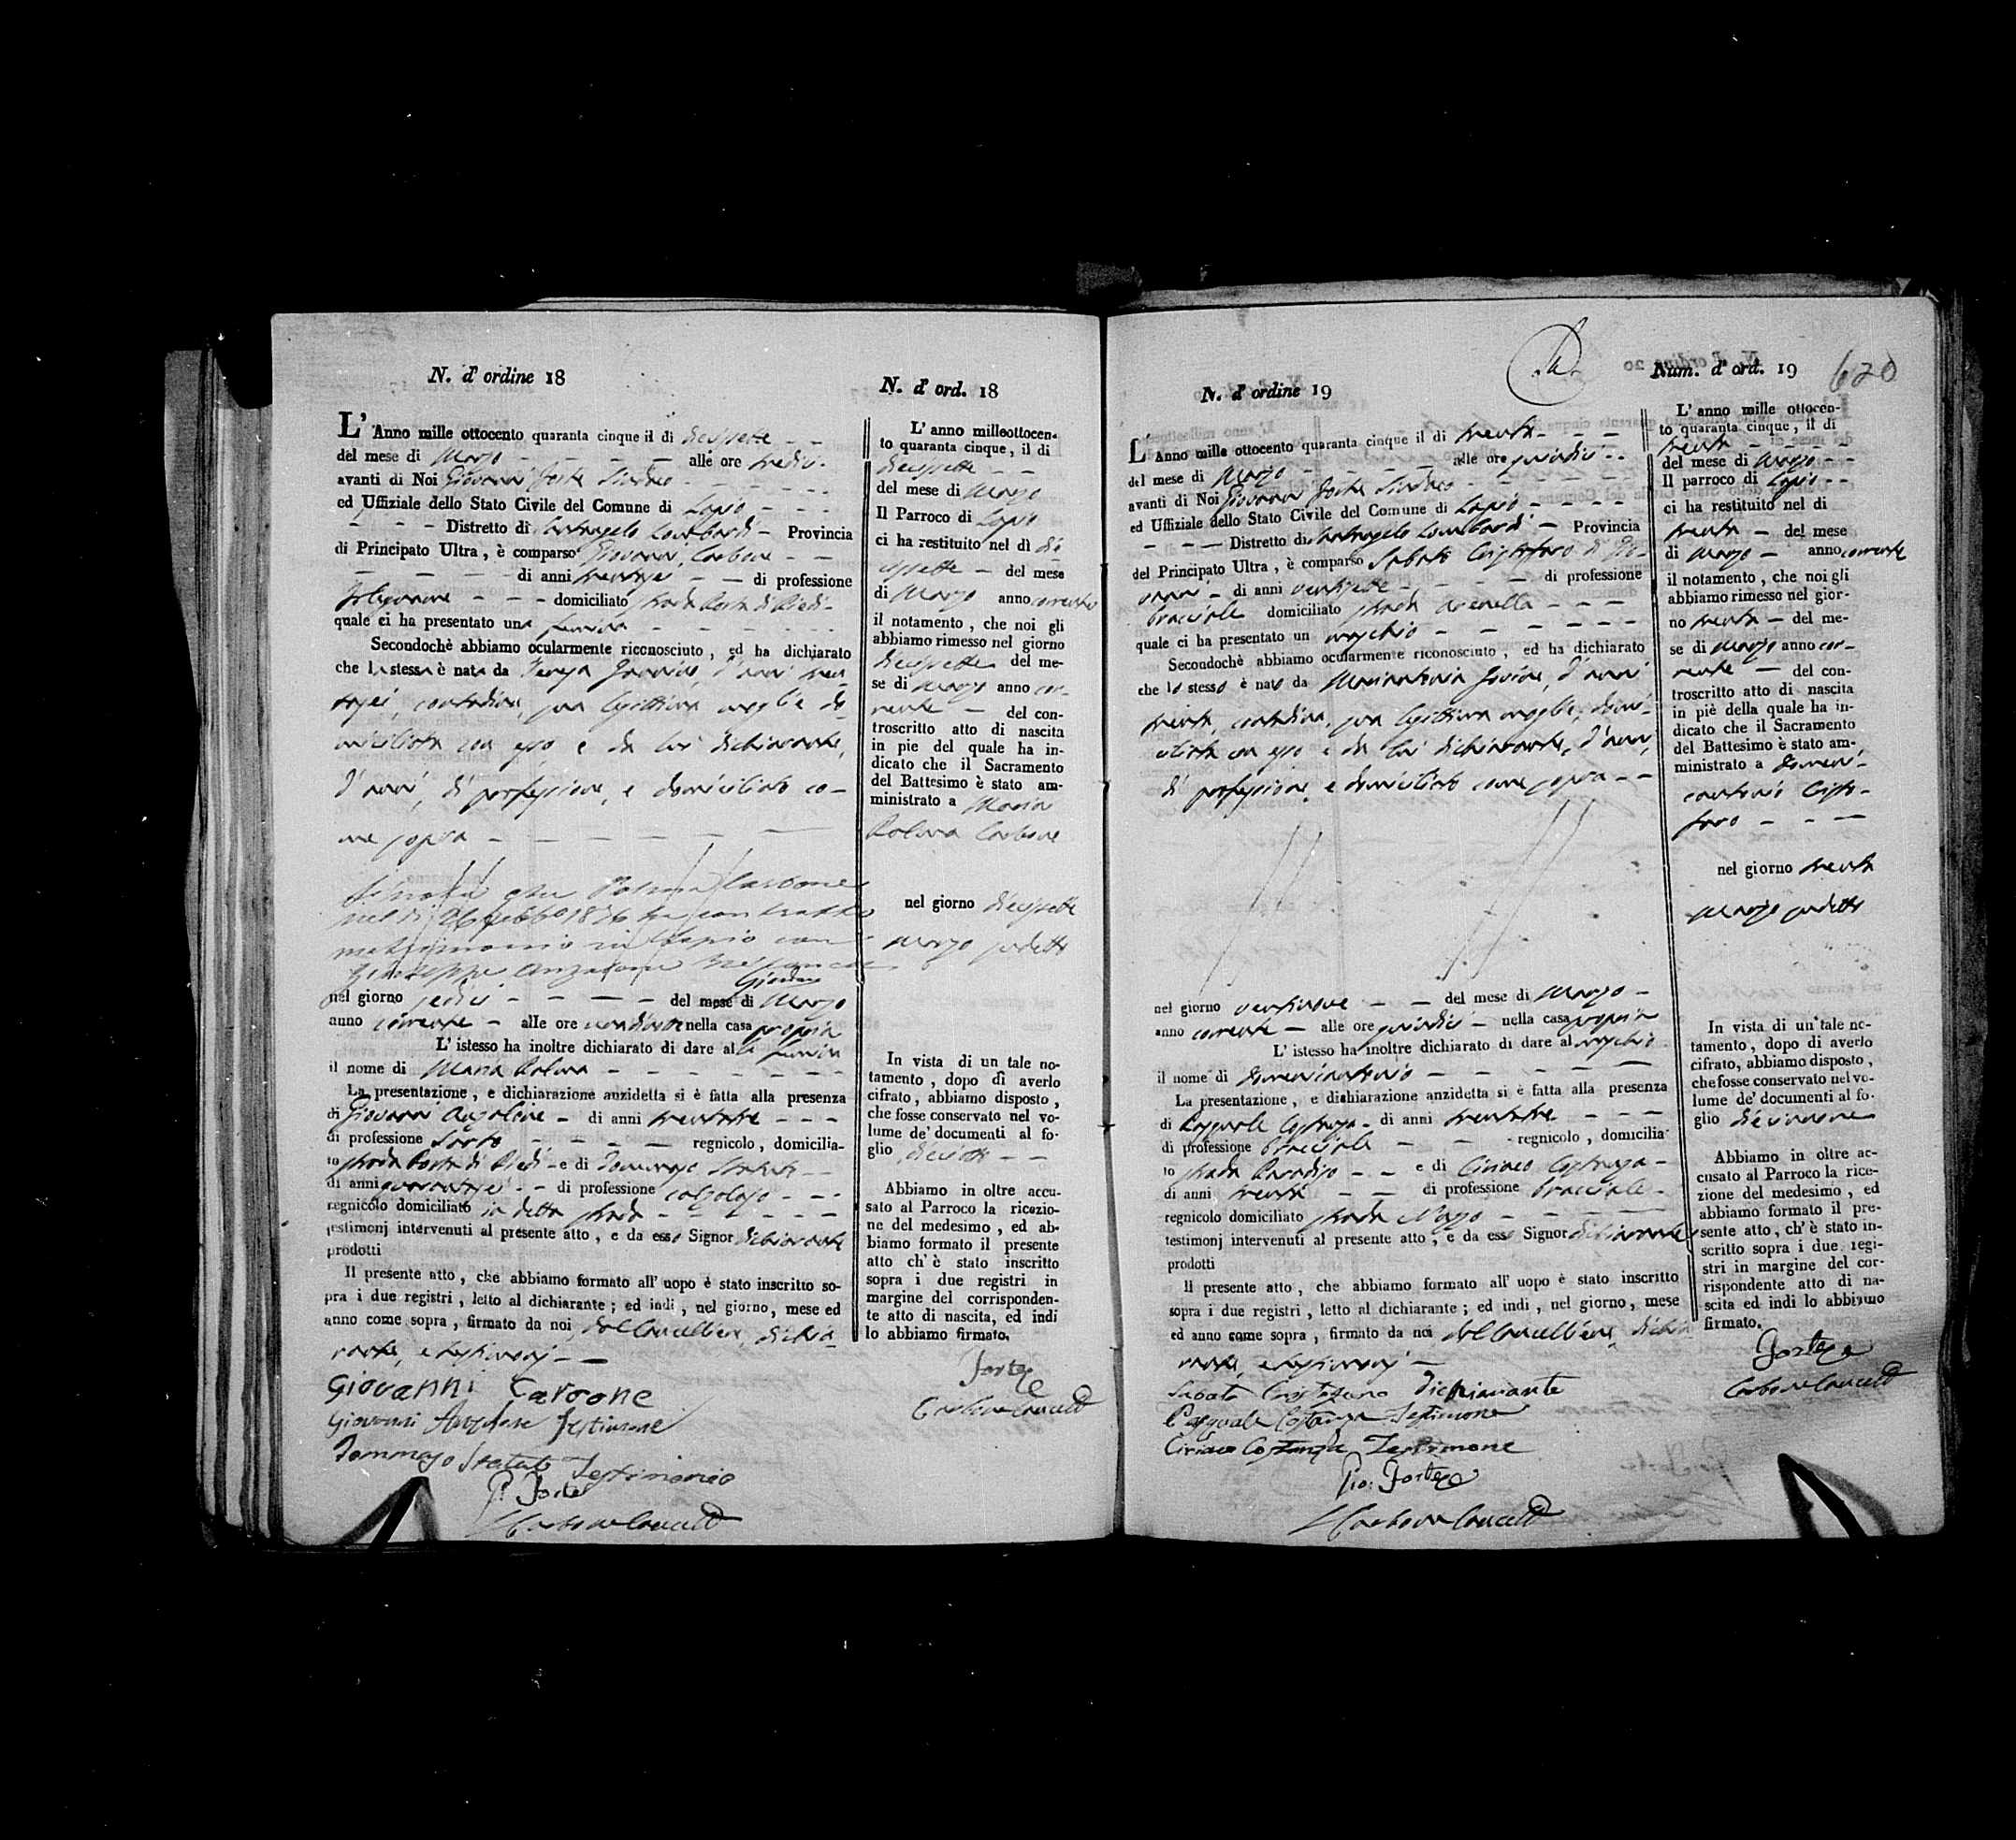 N. d' ordine 18
L' Anno mille ottocento quaranta cinque il di diecisette
del mese di Marzo alle ore tredici
avanti di Noi Giovanni Forte Sindaco
ed Uffiziale dello Stato Civile del Comune di Lapio
Distretto di Santangelo Lombardi Provincia
di Principato Ultra, è comparso Giovanni Carbone
di anni trentasei di professione
falegname domiciliato strada Porta di Piedi
quale ci ha presentato una femina
Secondochè abbiamo ocularmente riconosciuto, ed ha dichiarato
che la stessa è nata da Teresa d'anni tren-
tasei, contadina, sua legittima moglie do-
miciliata con esso e da lui dichiarante,
d'anni, di professione, e domiciliato co-
me sopra
Si nota che Palma Carbone
nel di 26 1876 ha contratto
matrimonio in Lapio con
Giuseppe Anzalone
nel giorno sedici del mese di Marzo
anno corrente alle ore nella casa propria
L' istesso ha inoltre dichiarato di dare alla femina
il nome di Maria Palma
La presentazione, e dichiarazione anzidetta si è fatta alla presenza
di Giovanni Anzalone di anni trentatre
di professione Sarto regnicolo, domicilia-
to strada Porta di Piedi e di Dommaso Statuto
di anni quarantasei di professione calzolajo
regnicolo domiciliato in detta strada
testimonj intervenuti al presente atto, e da esso Signor dichiarante
prodotti
Il presente atto, che abbiamo formato all' uopo è stato inscritto so-
pra i due registri, letto al dichiarante; ed indi, nel giorno, mese ed
anno come sopra, firmato da noi, dal Cancelliere, dichia
rante, e testimonj
Giovanni Carbone
Giovanni Anzalone Testimone
Tommaso Statuto Testimonio
G. Forte
Carbone Cancell
N. d' ord. 18
L' anno milleottocen-
to quaranta cinque, il di
diecisette
del mese di Marzo
Il Parroco di Lapio
ci ha restituito nel dì die
cisette del mese
di Marzo anno corrente
il notamento, che noi gli
abbiamo rimesso nel giorno
diecisette del me-
se di Marzo anno cor-
rente del con-
troscritto atto di nascita
in pie del quale ha in-
dicato che il Sacramento
del Battesimo è stato am-
ministrato a Maria
Palma Carbone
nel giorno diecisette
Marzo sudetto
In vista di un tale no-
tamento, dopo di averlo
cifrato, abbiamo disposto,
che fosse conservato nel vo-
lume de' documenti al fo-
glio dieciotto
Abbiamo in oltre accu-
sato al Parroco la ricezio-
ne del medesimo, ed ab-
biamo formato il presente
atto ch' è stato inscritto
sopra i due registri in
margine del corrisponden-
te atto di nascita, ed indi
lo abbiamo firmato.
Forte
Carbone Cancell
N. d' ordine 19
L' Anno mille ottocento quaranta cinque il di trenta
del mese di Marzo alle ore quindici
avanti di Noi Giovanni Forte Sindaco
ed Uffiziale dello Stato Civile del Comune di Lapio
Distretto di Santangelo Lombardi Provincia
del Principato Ultra, è comparso Sabato Cristofaro di Gio-
vanni di anni ventisette di professione
bracciale domiciliato strada Arenella
quale ci ha presentato un maschio
Secondochè abbiamo ocularmente riconosciuto, ed ha dichiarato
che lo stesso è nato da Mariantonia d'anni
trenta, contadina, sua legittima moglie, domi-
ciliata con esso e da lui dichiarante, d'anni,
di professione, e domiciliato come sopra
nel giorno ventinove del mese di Marzo
anno corrente alle ore quindici nella casa propria
L' istesso ha inoltre dichiarato di dare al maschio
il nome di Domenicantonio
La presentazione, e dichiarazione anzidetta si è fatta alla presenza
di Pasquale Costanza di anni trentatre
di professione bracciale regnicolo, domicilia-
to strada Paradiso e di Ciriaco Costanza
di anni trenta di professione bracciale
regnicolo domiciliato strada
testimonj intervenuti al presente atto, e da esso Signor dichiarante
prodotti
Il presente atto, che abbiamo formato all' uopo è stato inscritto
sopra i due registri, letto al dichiarante; ed indi, nel giorno, mese
ed anno come sopra, firmato da noi dal Cancelliere, dichia
rante, e testimonj
Sabato Cristofaro Dichiarante
Pasquale Costanza Testimone
Ciriaco Costanza Testimone
Gio: Forte
Carbone Cancell
Num. d' ord. 19
620
L' anno mille ottocen-
to quaranta cinque, il di
trenta
del mese di Marzo
Il parroco di Lapio
ci ha restituito nel di
trenta del mese
di Marzo anno corrente
il notamento, che noi gli
abbiamo rimesso nel gior-
no trenta del me-
se di Marzo anno cor-
rente del con-
troscritto atto di nascita
in piè della quale ha in-
dicato che il Sacramento
del Battesimo è stato am-
ministrato a Domeni-
cantonio Cristo-
faro
nel giorno trenta
Marzo sudetto
In vista di un tale no-
tamento, dopo di averlo
cifrato, abbiamo disposto,
che fosse conservato nel vo-
lume de' documenti al fo-
glio diecinove
Abbiamo in oltre ac-
cusato al Parroco la rice-
zione del medesimo, ed
abbiamo formato il pre-
sente atto, ch' è stato in-
scritto sopra i due regi-
stri in margine del cor-
rispondente atto di na-
scita ed indi lo abbiamo
firmato.
Forte
Carbone Cancell